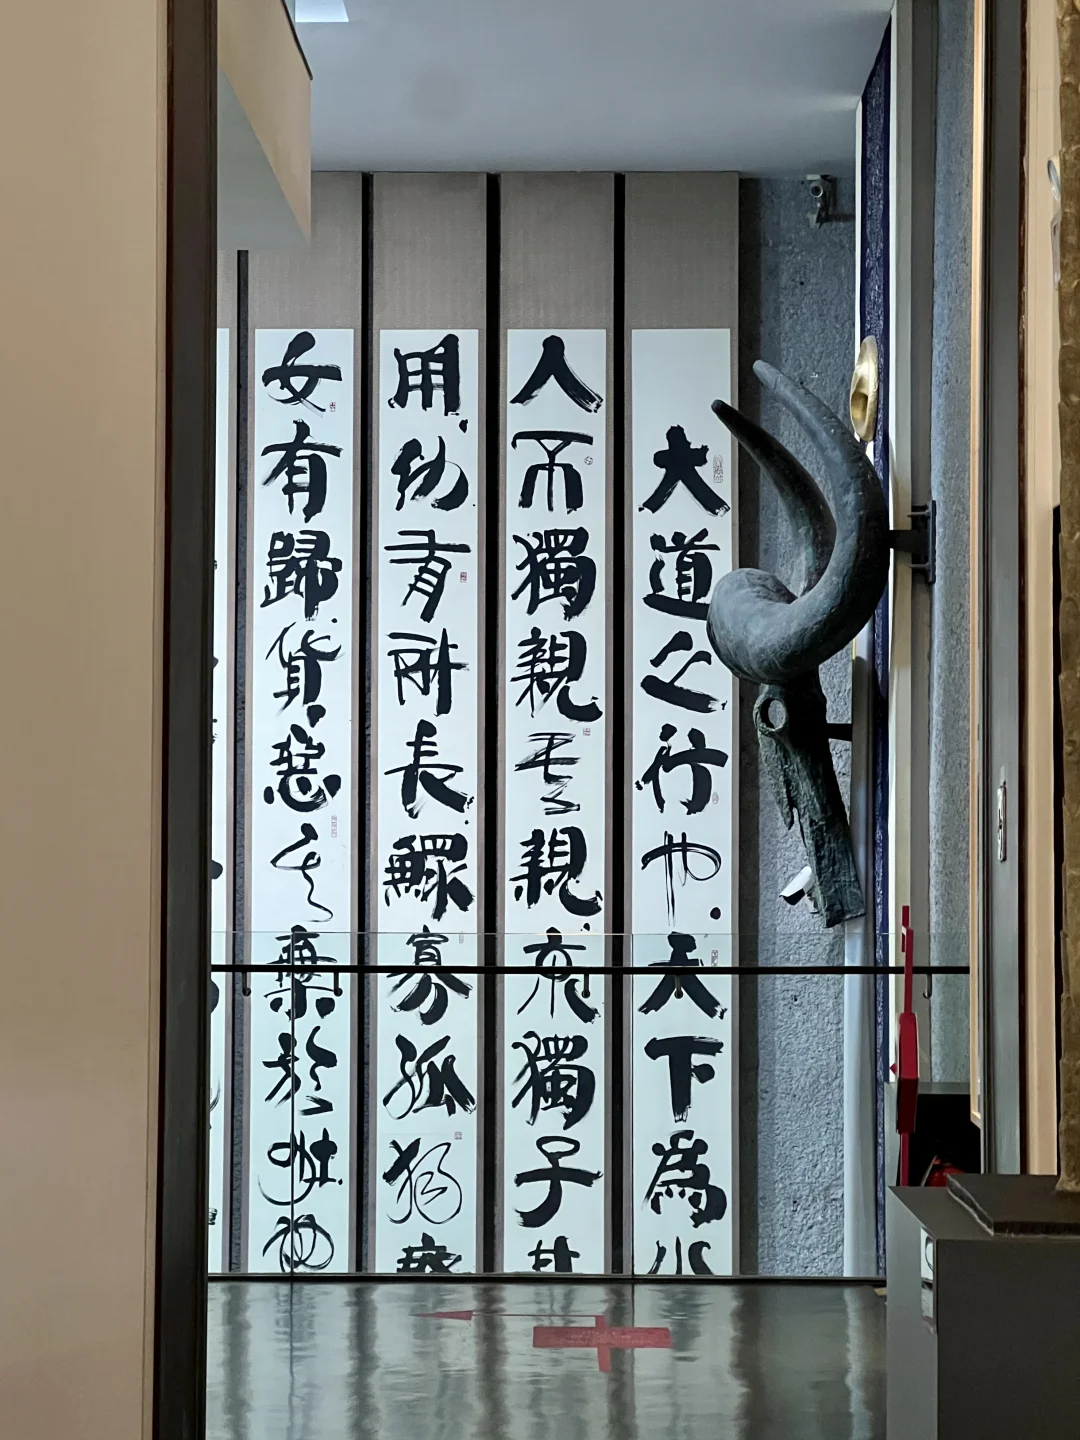 大道之行也天下為公
人不獨親其親不獨子其
用幼有所長鰥寡孤獨廢
女有歸貨惡其棄於地也